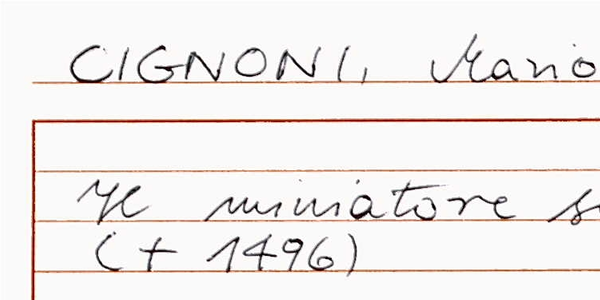 CIGNONI, Mario
Il miniatore
(+ 1496)